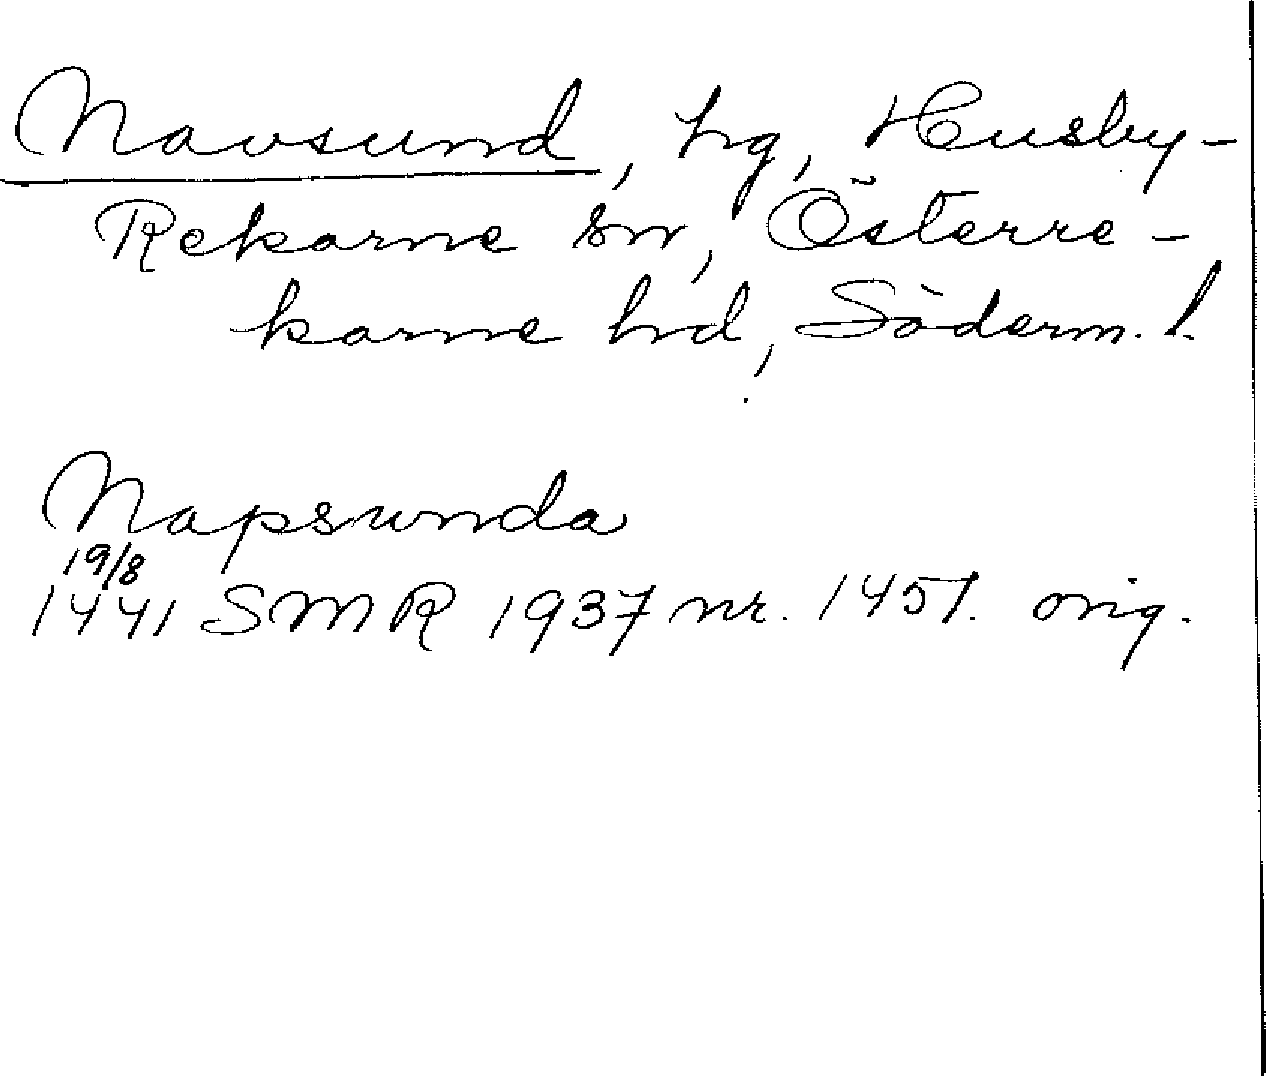 Navsund, hg, Husby-
Rekarne sn, Österre-
karne hd, Söderm. l.
Napsunda
19/8
1441 SMR 1937 nr. 1451. orig.